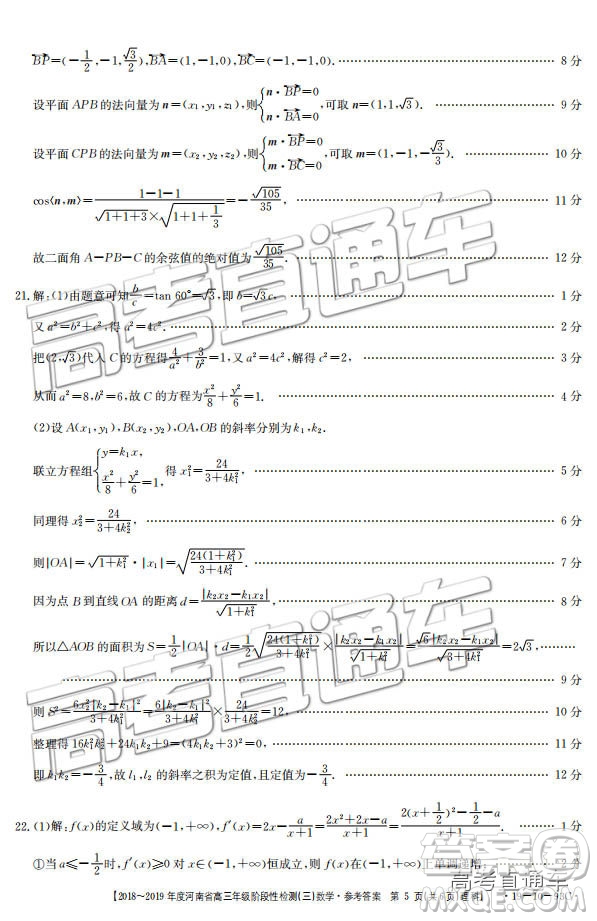 $\overrightarrow{BP}=(-\frac{1}{2},-1,\frac{\sqrt{3}}{2}),\overrightarrow{BA}=(1,-1,0),\overrightarrow{BC}=(-1,-1,0).$ …… 8 分
设平面 APB 的法向量为 $n=(x_1,y_1,z_1)$,则$\begin{cases}n\cdot\overrightarrow{BP}=0\\n\cdot\overrightarrow{BA}=0\end{cases}$,可取 $n=(1,1,\sqrt{3})$. …… 9 分
设平面 CPB 的法向量为 $m=(x_2,y_2,z_2)$,则$\begin{cases}m\cdot\overrightarrow{BP}=0\\m\cdot\overrightarrow{BC}=0\end{cases}$,可取 $m=(1,-1,-\frac{\sqrt{3}}{3})$. …… 10 分
$\cos\langle n,m\rangle=\frac{1-1-1}{\sqrt{1+1+3}\times\sqrt{1+1+\frac{1}{3}}}=-\frac{\sqrt{105}}{35},$ …… 11 分
故二面角 A-PB-C 的余弦值的绝对值为$\frac{\sqrt{105}}{35}$. …… 12 分
21. 解:(1)由题意可知$\frac{b}{c}=\tan 60°=\sqrt{3}$,即 $b=\sqrt{3}c$, …… 1 分
又 $a^2=b^2+c^2$,得 $a^2=4c^2$. …… 2 分
把$(2,\sqrt{3})$代入 C 的方程得$\frac{4}{a^2}+\frac{3}{b^2}=1$,又 $a^2=4c^2$,解得 $c^2=2$, …… 3 分
从而 $a^2=8,b^2=6$,故 C 的方程为$\frac{x^2}{8}+\frac{y^2}{6}=1$. …… 4 分
(2)设 $A(x_1,y_1),B(x_2,y_2)$,OA,OB 的斜率分别为 $k_1,k_2$.
联立方程组$\begin{cases}y=k_1x,\\\frac{x^2}{8}+\frac{y^2}{6}=1,\end{cases}$得 $x_1^2=\frac{24}{3+4k_1^2}$, …… 5 分
同理得 $x_2^2=\frac{24}{3+4k_2^2}$, …… 6 分
则$|OA|=\sqrt{1+k_1^2}\cdot|x_1|=\sqrt{\frac{24(1+k_1^2)}{3+4k_1^2}}$. …… 7 分
因为点 B 到直线 OA 的距离 $d=\frac{|k_2x_2-k_1x_2|}{\sqrt{1+k_1^2}}$, …… 8 分
所以△AOB 的面积为 $S=\frac{1}{2}|OA|\cdot d=\frac{1}{2}\sqrt{\frac{24(1+k_1^2)}{3+4k_1^2}}\times\frac{|k_2x_2-k_1x_2|}{\sqrt{1+k_1^2}}=\frac{\sqrt{6}|k_2x_2-k_1x_2|}{\sqrt{3+4k_1^2}}=2\sqrt{3}$,
…… 9 分
则 $S^2=\frac{6x_2^2|k_2-k_1|^2}{3+4k_1^2}=\frac{6|k_2-k_1|^2}{3+4k_1^2}\times\frac{24}{3+4k_2^2}=12$, …… 10 分
整理得 $16k_1^2k_2^2+24k_1k_2+9=(4k_1k_2+3)^2=0$, …… 11 分
即 $k_1k_2=-\frac{3}{4}$,故 $l_1,l_2$ 的斜率之积为定值,且定值为$-\frac{3}{4}$. …… 12 分
22. (1)解:$f(x)$的定义域为$(-1,+\infty)$,$f'(x)=2x-\frac{a}{x+1}=\frac{2x^2+2x-a}{x+1}=\frac{2(x+\frac{1}{2})^2-\frac{1}{2}-a}{x+1}$. …… 1 分
①当 $a\leqslant-\frac{1}{2}$时,$f'(x)\geqslant0$ 对 $x\in(-1,+\infty)$恒成立,则 $f(x)$在$(-1,+\infty)$上单调递增.
【2018~2019 年度河南省高三年级阶段性检测(三)数学·参考答案 第 5 页(共6页)理科】
高考直通车
高考直通车
高考直通车
答案圈